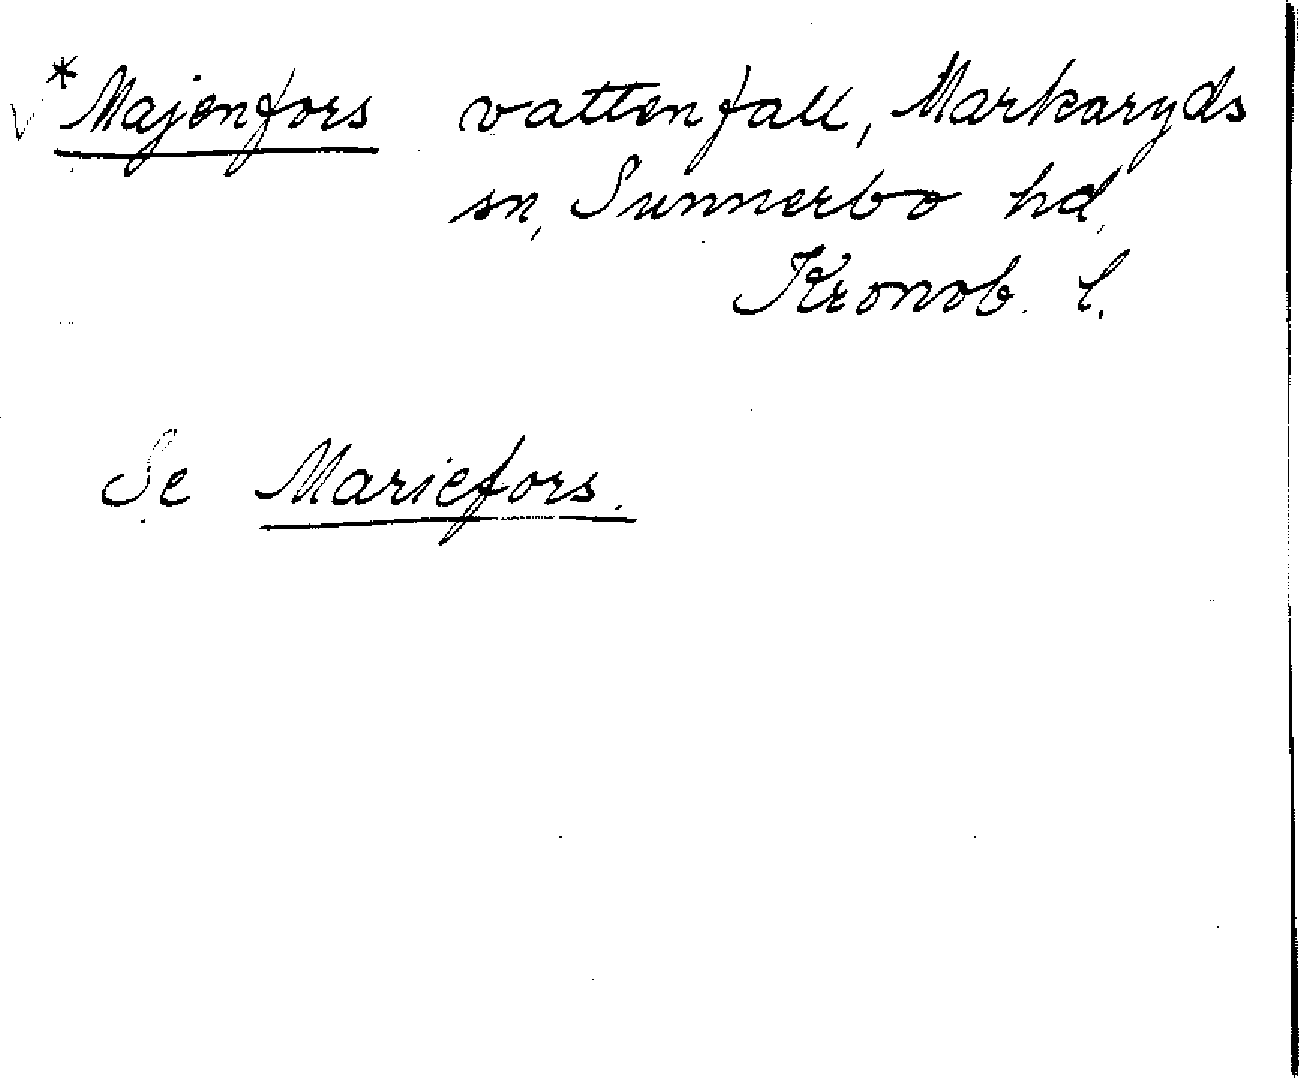 *Majenfors vattenfall, Markaryds
sn, Sunnerbo hd,
Kronob. l.
Se Mariefors.